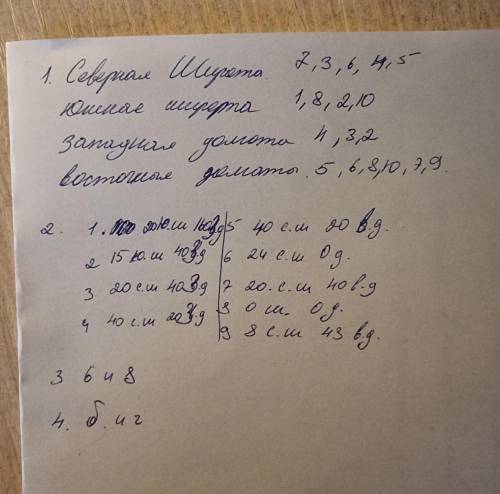 1. Северная Широта. 7, 3, 6, 4, 5
Южная широта 1, 8, 2, 10
Западная долгота 4, 3, 2
восточные долготы. 5, 6, 8, 10, 7, 9.
2. 1. 20 ю.ш 160 з.д
2 15 ю.ш 40 з.д
3 20 с.ш 40 з.д
4 40 с.ш 20 з.д
5 40 с.ш 20 в.д.
6 24 с.ш 0 д.
7 20. с.ш 40 в.д
8 0 ш. 0 д.
9 8 с.ш 43 в.д.
3 6 и 8
4. б. и г